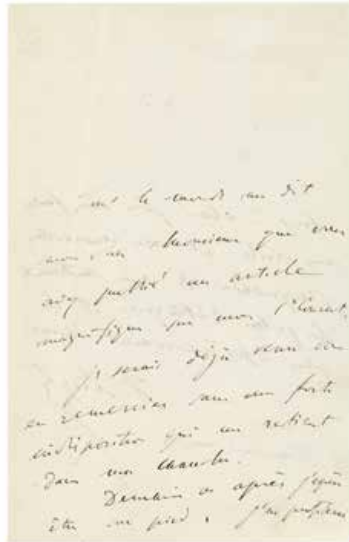 le monde me dit
Monsieur que vous
avez publié un article
magnifique sur mon
je serais déjà venu vous
en remercier sans une forte
indisposition qui me retient
dans ma chambre.
Demain ou après j'espère
être sur pied,